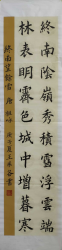 終南陰嶺秀積雪浮雲端
林表明霽色城中增暮寒
終南望餘雪 唐 祖詠